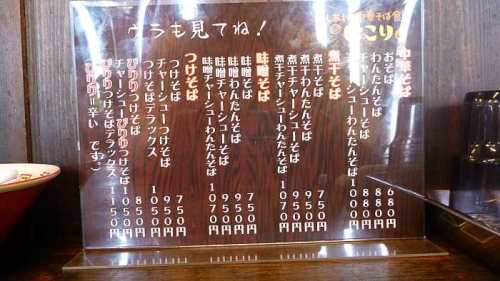 ウラも見てね！
中華そば
おそば 680円
わんたんそば 880円
チャーシューそば 880円
チャーシューわんたんそば 1000円
煮干そば
煮干そば 750円
煮干わんたんそば 950円
煮干チャーシューそば 950円
煮干チャーシューわんたんそば 1070円
味噌そば
味噌そば 750円
味噌わんたんそば 950円
味噌チャーシューそば 950円
味噌チャーシューわんたんそば 1070円
つけそば
つけそば 750円
チャーシューつけそば 950円
つけそばデラックス 1050円
ぴりりつけそば 850円
チャーシューぴりりつけそば 1050円
ぴりりつけそばデラックス 1150円
（ぴりり＝辛い です。）